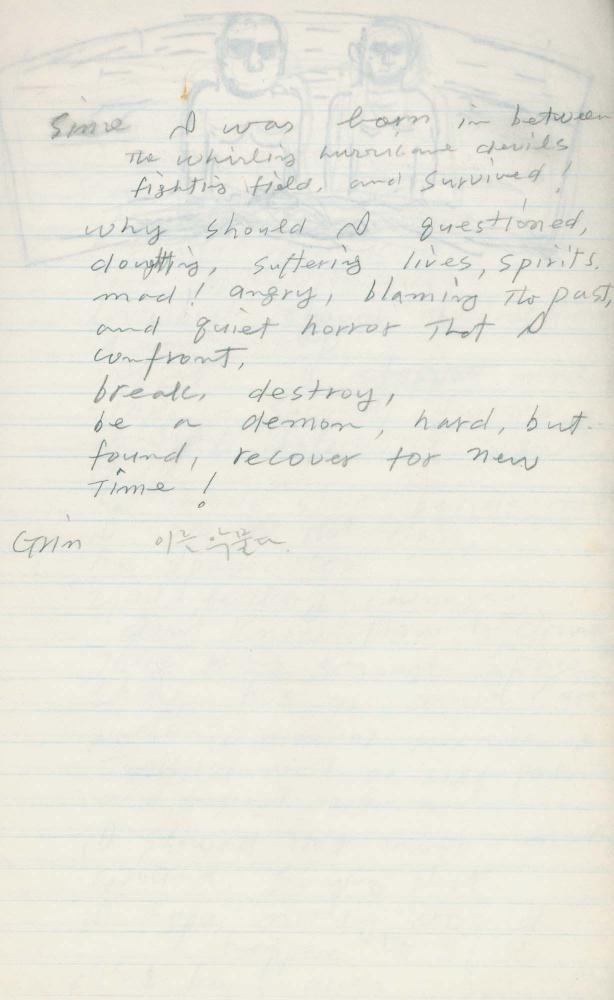 Since I was born in between
The whirling hurricane devils
fighting field, and survived!
why should I questioned,
doubtting, suffering lives, spirits.
mad! angry, blaming The past,
and quiet horror That I
confront,
break, destroy,
be a demon, hard, but
found, recover for new
Time!
Grin 이를 악물다.